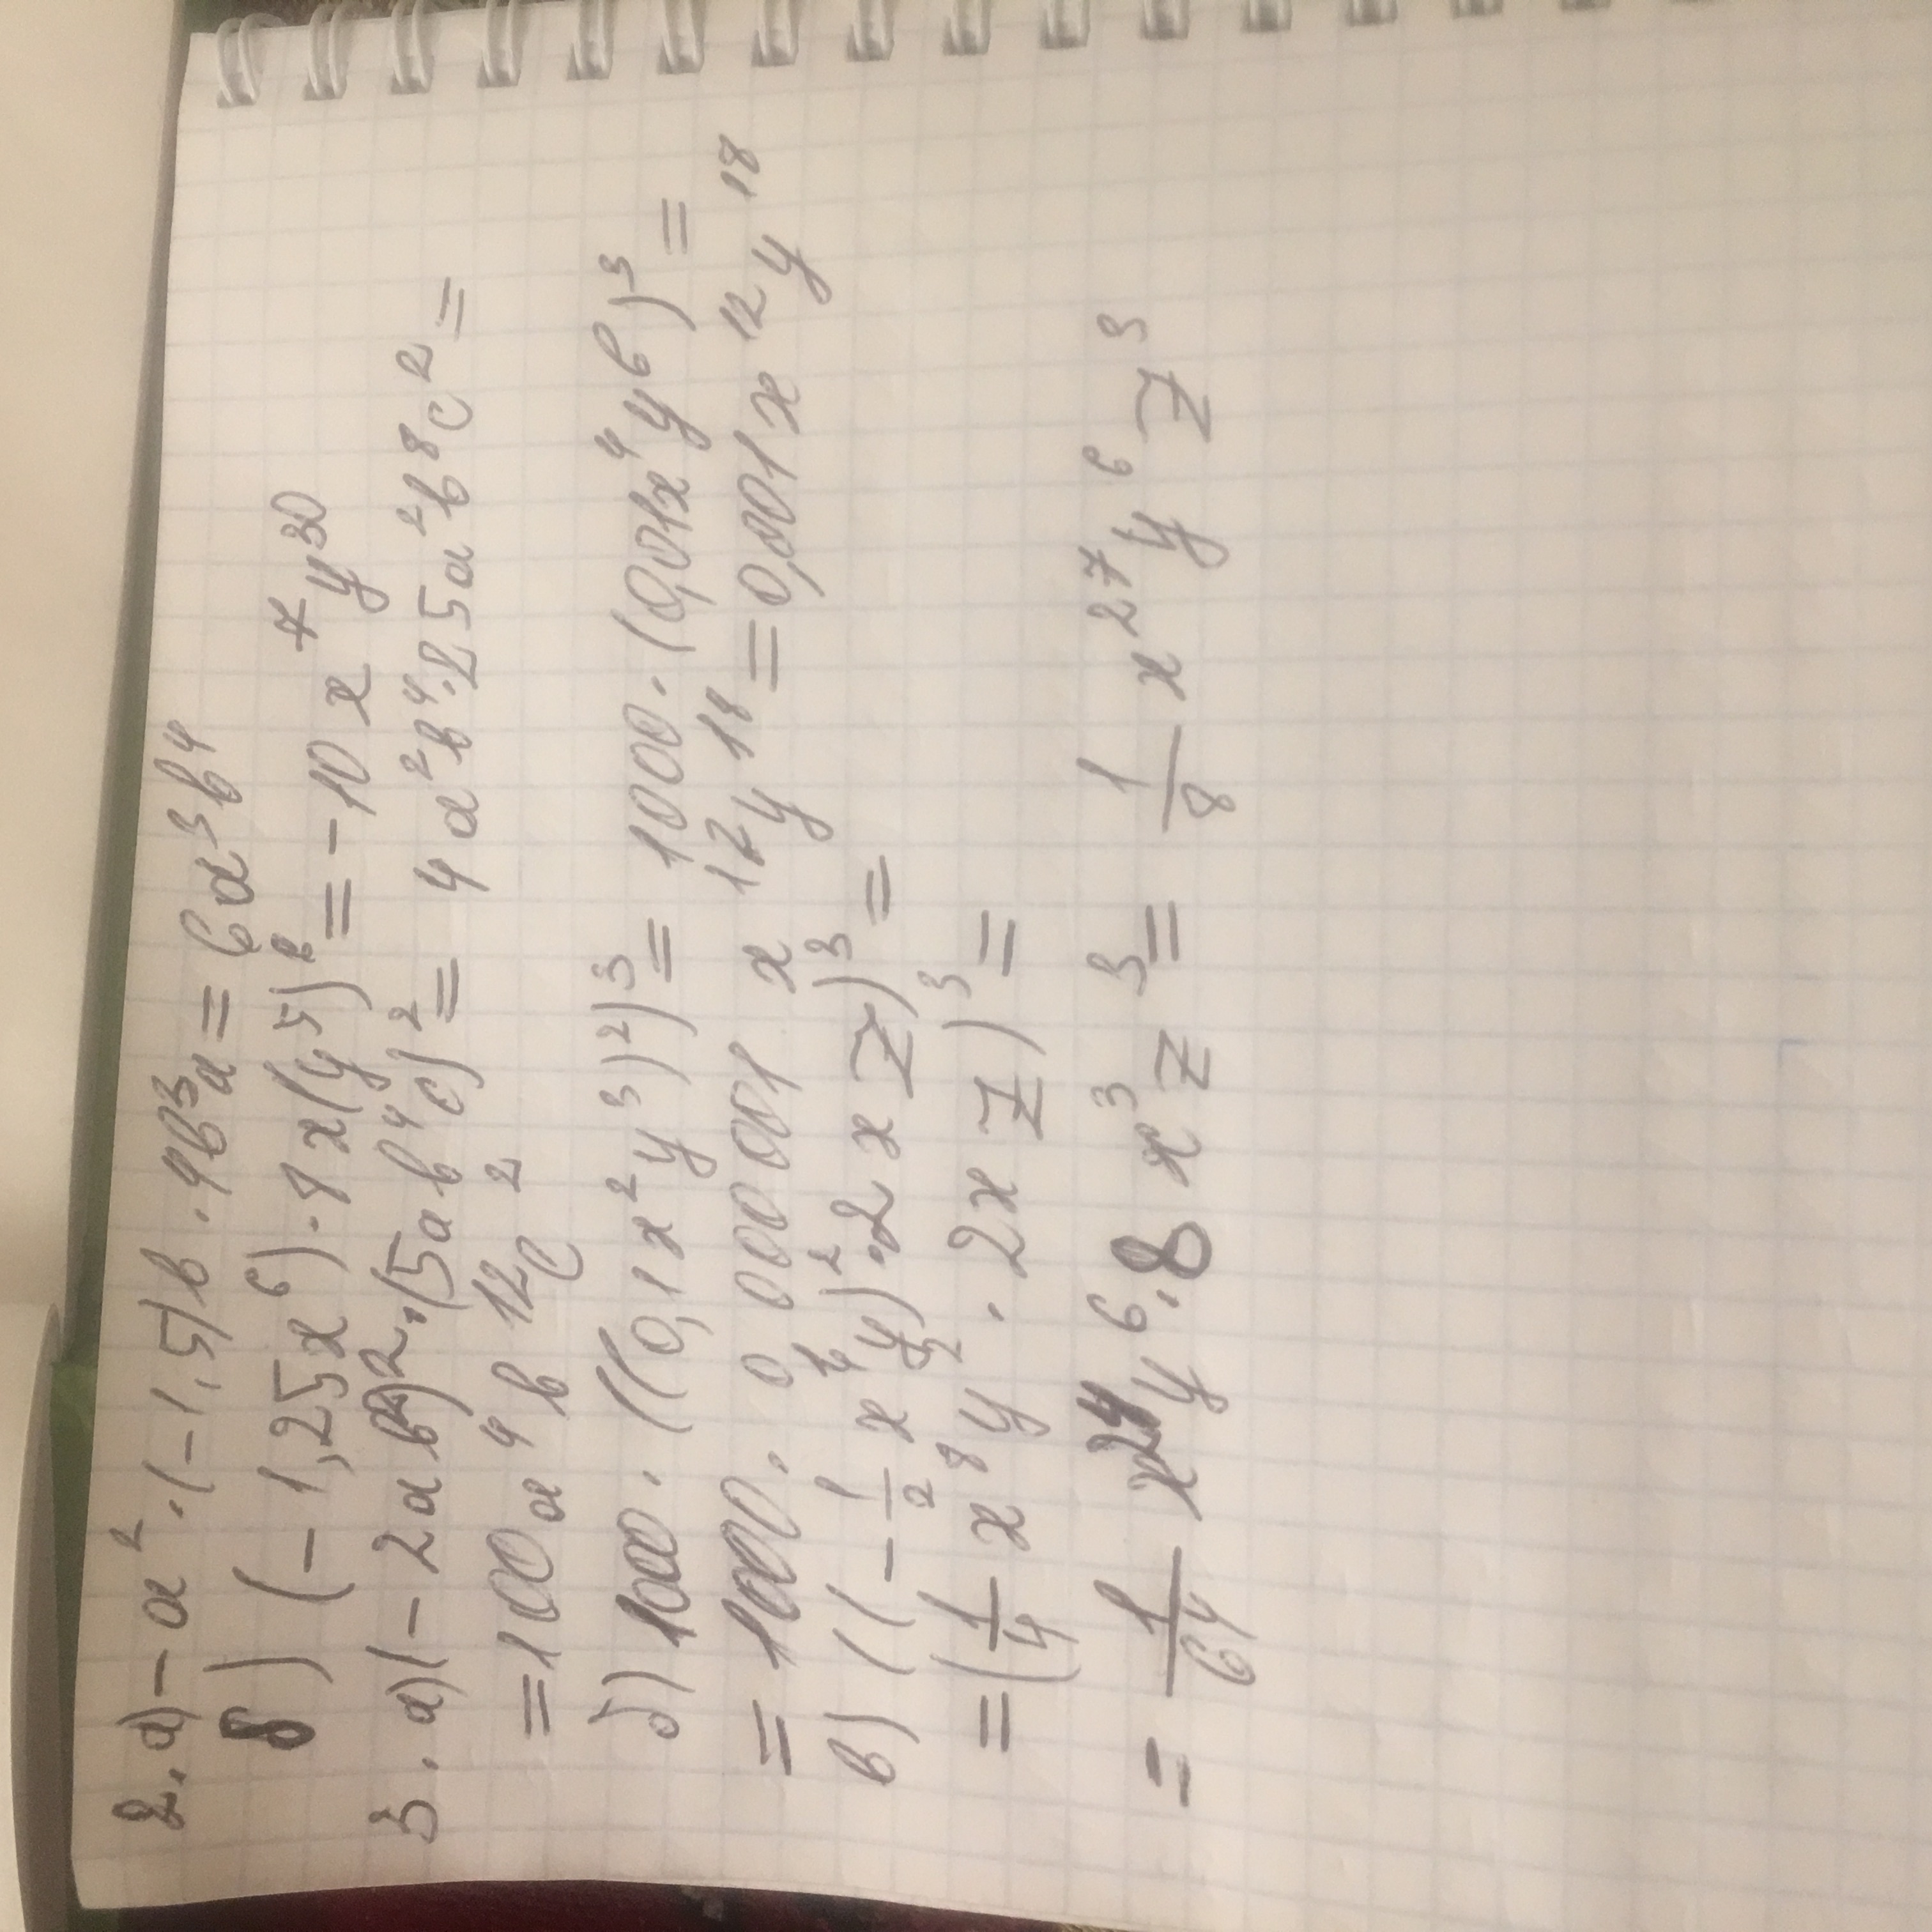 2. а) - a² · (-1,5) b · 4b³a = 6a³b⁴
б) (-1,25x⁶) · 8x(y⁵)⁶ = -10x⁷y³⁰
3. а) (-2ab²)² · (5ab⁴c)² = 4a²b⁴ · 25a²b⁸c² =
= 100a⁴b¹²c²
б) 1000 · ((0,1x²y³)²)³ = 1000 · (0,01x⁴y⁶)³ =
= 1000 · 0,000001x¹²y¹⁸ = 0,001x¹²y¹⁸
в) ((-1/2 x⁴y)² · 2xz)³ =
= (1/4 x⁸y² · 2xz)³ =
= 1/64 x²⁴y⁶ · 8x³z³ = 1/8 x²⁷y⁶z³